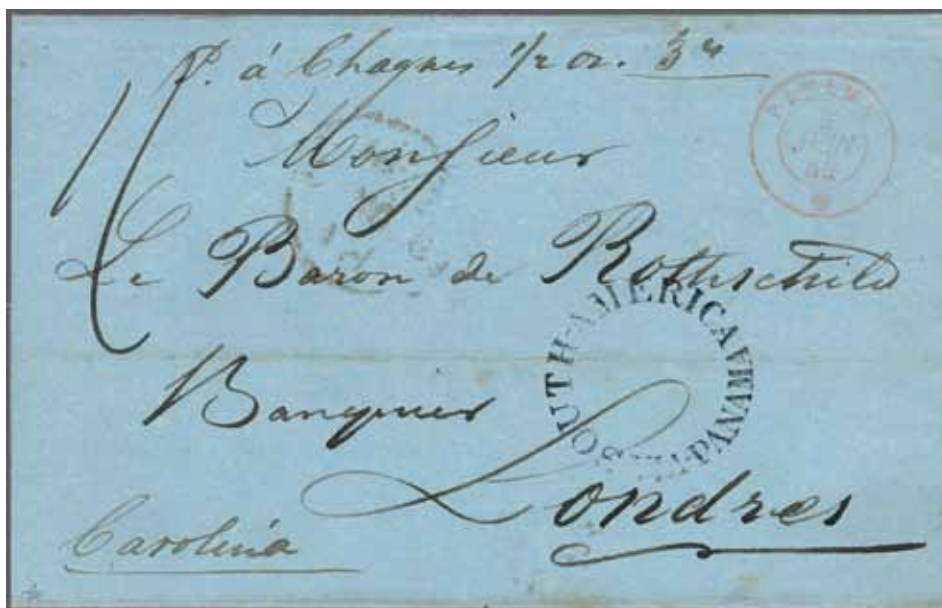 P. á Chagres 1/2 oz. 3rs
PANAMA
JUIN
Monsieur
Le Baron de Rothschild
SOUTH-AMERICA VIA-PANAMA
Banquier
Londres
Carolina